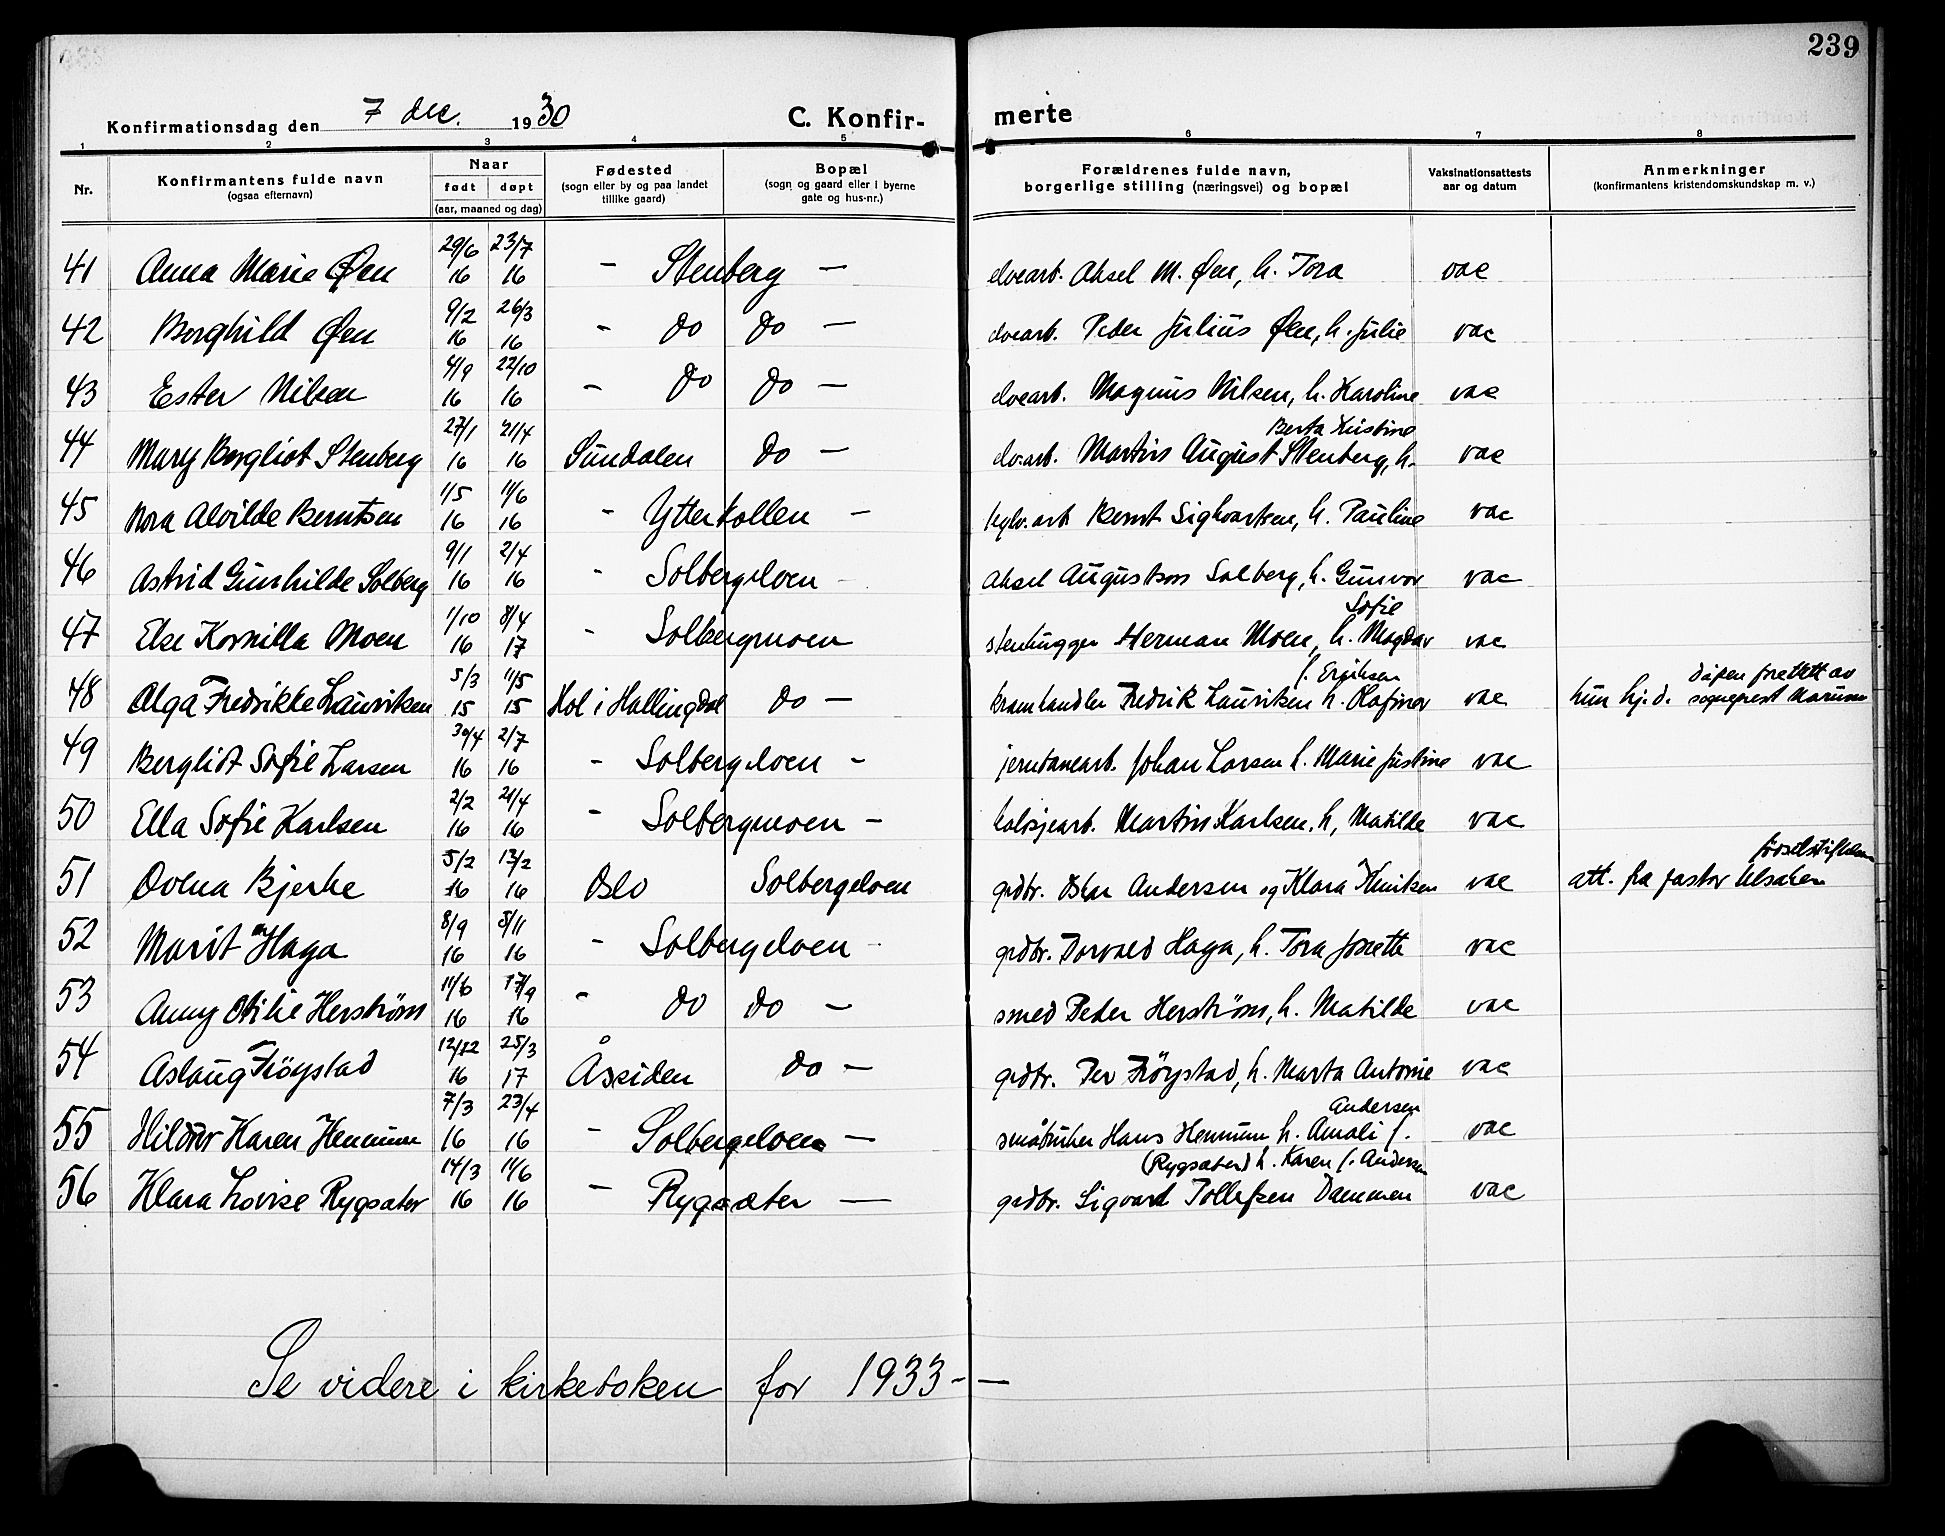 239
Konfirmationsdag den 7 dec. 1930 C. Konfir- merte
1 2 3 4 5 6 7 8
Nr. Konfirmantens fulde navn (ogsaa efternavn) Naar født døpt (aar, maaned og dag) Fødested (sogn eller by og paa landet tillike gaard) Bopæl (sogn og gaard eller i byerne gate og hus-nr.) Forældrenes fulde navn, borgerlige stilling (næringsvei) og bopæl Vaksinationsattests aar og datum Anmerkninger (konfirmantens kristendomskundskap m. v.)
41 Anna Marie Øen 29/6 16 23/7 16 - Stenberg - Aksel M. Øen, h. Tora vac
42 Borghild Øen 9/2 16 26/3 16 - do do - Peder Julius Øen, h. Julie vac
43 Ester Nilsen 4/9 16 22/10 16 - do do - Magnus Nilsen, h. Karoline vac
44 Mary Borgliot Stenberg 27/1 16 21/4 16 Sundalen do - Martin August Stenberg, h. Berta Kristine vac
45 Nora Alvilde Berntsen 1/5 16 11/6 16 - Ytterkollen - Bernt Sighvartsen, h. Pauline vac
46 Astrid Gunhilde Solberg 9/1 16 2/4 16 - Solbergeloen - Aksel Augustson Solberg, h. Gunvor vac
47 Else Kornilla Moen 1/10 16 8/4 17 - Solbergmoen stenhugger Herman Moen, h. Magda Sofie vac
48 Olga Fredrikke Lauriksen 5/3 15 11/5 15 Hol i Hallingdal do - Fredrik Lauriksen h. f. Eriksen vac hun hj.d. dåpen av sogneprest
49 Bergliot Sofie Larsen 30/4 16 2/7 16 - Solbergeloen - Johan Larsen h. Marie Justine vac
50 Ella Sofie Karlsen 2/2 16 21/4 16 - Solbergmoen - Martin Karlsen, h, Matilde vac
51 Ovena Bjerke 5/2 16 13/2 16 Oslo Solbergeloen grdbr. Oskar Andersen og Klara Henriksen vac att. fra pastor
52 Marit Haga 8/9 16 5/11 16 - Solbergeloen - grdbr. Torvald Haga, h. Tora Josette vac
53 Anny Otilie Herstrøm 11/6 16 17/9 16 - do do - smed Peder Herstrøm, h. Matilde vac
54 Aslaug Frøystad 12/12 16 25/3 17 Åssiden do - grdbr. Per Frøystad, h. Marta Antonie vac
55 Hildur Karen Hennum 7/3 16 23/4 16 - Solbergeloen - småbruker Hans Hennum h. Amali f. Andersen vac
56 Klara Lovise Rygsæter 14/3 16 11/6 16 - Rygsæter - grdbr. Sigvard Tollefsen Dammen (Rygsæter) h. Karen f. Andersen vac
Se videre i kirkeboken for 1933 - -